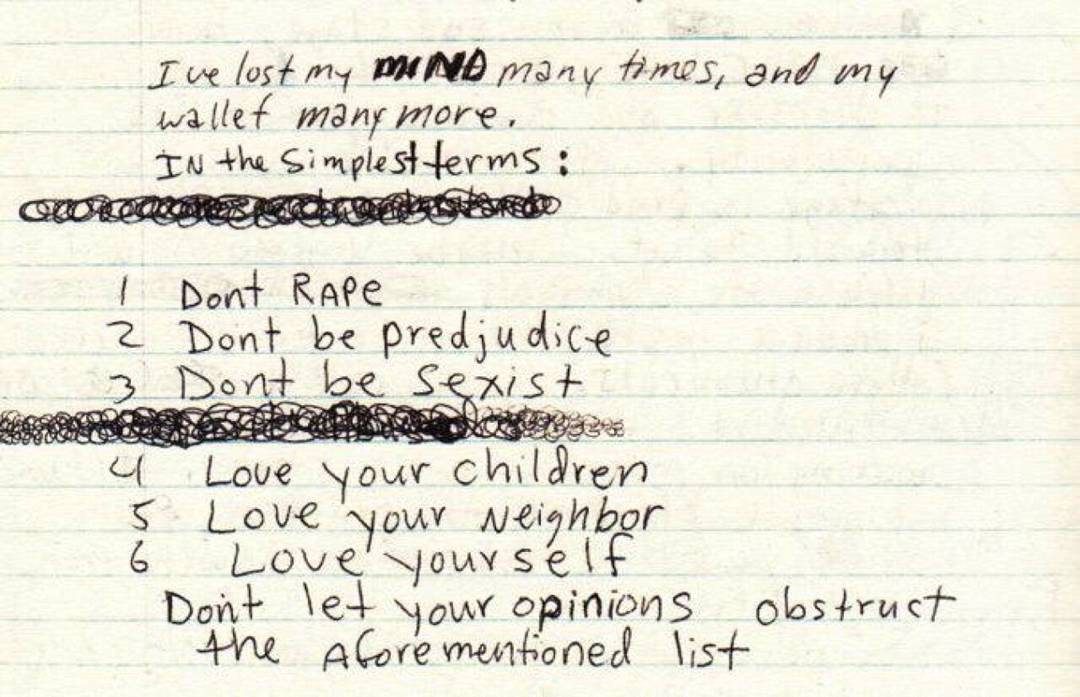 I've lost my MIND many times, and my
wallet many more.
IN the Simplest terms:
1 Dont RAPe
2 Don't be predjudice
3 Dont be Sexist
4 Love your children
5 Love your Neighbor
6 Love yourself
Don't let your opinions obstruct
the aforementioned list